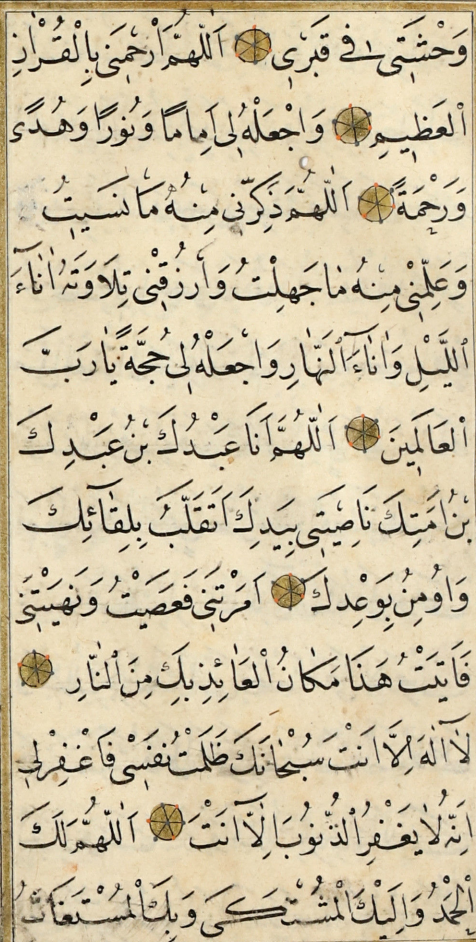 وَحْشَتِى فِى قَبْرِى ۞ اَللّٰهُمَّ اَرْحَمْنِى بِالْقُرْاٰنِ
الْعَظِيمِ ۞ وَاجْعَلْهُ لِى اِمَامًا وَنُورًا وَهُدًى
وَرَحْمَةً ۞ اَللّٰهُمَّ ذَكِّرْنِى مِنْهُ مَا نَسِيتُ
وَعَلِّمْنِى مِنْهُ مَا جَهِلْتُ وَارْزُقْنِى تِلَاوَتَهُ اٰنَاءَ
اللَّيْلِ وَاٰنَاءَ النَّهَارِ وَاجْعَلْهُ لِى حُجَّةً يَا رَبَّ
الْعَالَمِينَ ۞ اَللّٰهُمَّ اَنَا عَبْدُكَ بْنُ عَبْدِكَ
بْنُ اَمَتِكَ نَاصِيَتِى بِيَدِكَ اَتَقَلَّبُ بِلِقَائِكَ
وَاُومِنُ بِوَعْدِكَ ۞ اَمَرْتَنِى فَعَصَيْتُ وَنَهَيْتَنِى
فَاَتَيْتُ هَذَا مَكَانُ الْعَائِذِ بِكَ مِنَ النَّارِ ۞
لَا اِلٰهَ اِلَّا اَنْتَ سُبْحَانَكَ ظَلَمْتُ نَفْسِى فَاغْفِرْ لِى
اِنَّهُ لَا يَغْفِرُ الذُّنُوبَ اِلَّا اَنْتَ ۞ اَللّٰهُمَّ لَكَ
الْحَمْدُ وَاِلَيْكَ الْمُشْتَكَى وَبِكَ الْمُسْتَغَاثُ